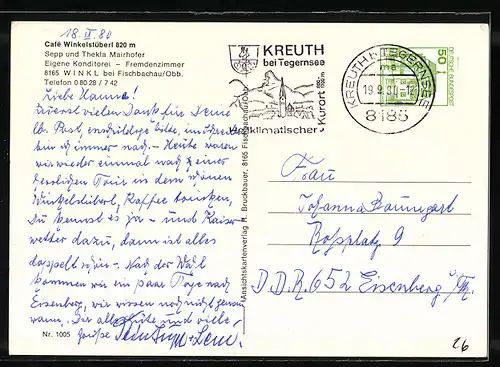 18.IX.80
Café Winkelstüberl 820 m
Sepp und Thekla Mairhofer
Eigene Konditorei – Fremdenzimmer
8165 WINKL bei Fischbachau/Obb.
Telefon 0 80 28 / 7 42
Liebe Hanna!
Zuerst vielen Dank für Deine
lb. Post, entschuldige bitte,
bin ich immer noch – Heute waren
wir wieder einmal nach einer
herrlichen Tour in dem schönen
Winkelstüberl, Kaffee trinken,
Du kennst es ja – und Kaiser
wetter dazu, dann ist alles
doppelt schön – Nach der Wahl
kommen wir ein paar Tage nach
Eisenberg, wir wissen noch nicht genau
wann. Dir alles Gute und viele
Grüße
Nr. 1005
Ansichtskartenverlag H. Bruckbauer, 8165 Fischbachau/Obb.
KREUTH
bei Tegernsee
Heilklimatischer
Kurort
800-
1600 m
KREUTH b TEGERNSEE
19.9.80-12
8185
50
DEUTSCHE BUNDESPOST
Frau
Johanna Baumgart
Roßplatz 9
D.D.R. 652 Eisenberg/Th.
26